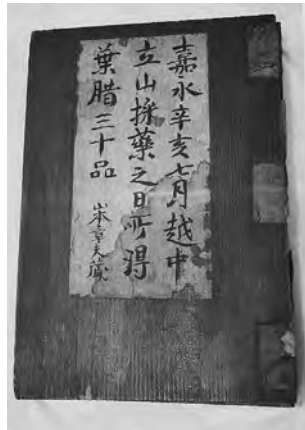 嘉永辛亥七月越中
立山採藥之日所得
葉腊三十品 山本章夫藏